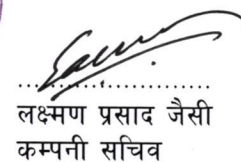 लक्ष्मण प्रसाद जैसी
कम्पनी सचिव